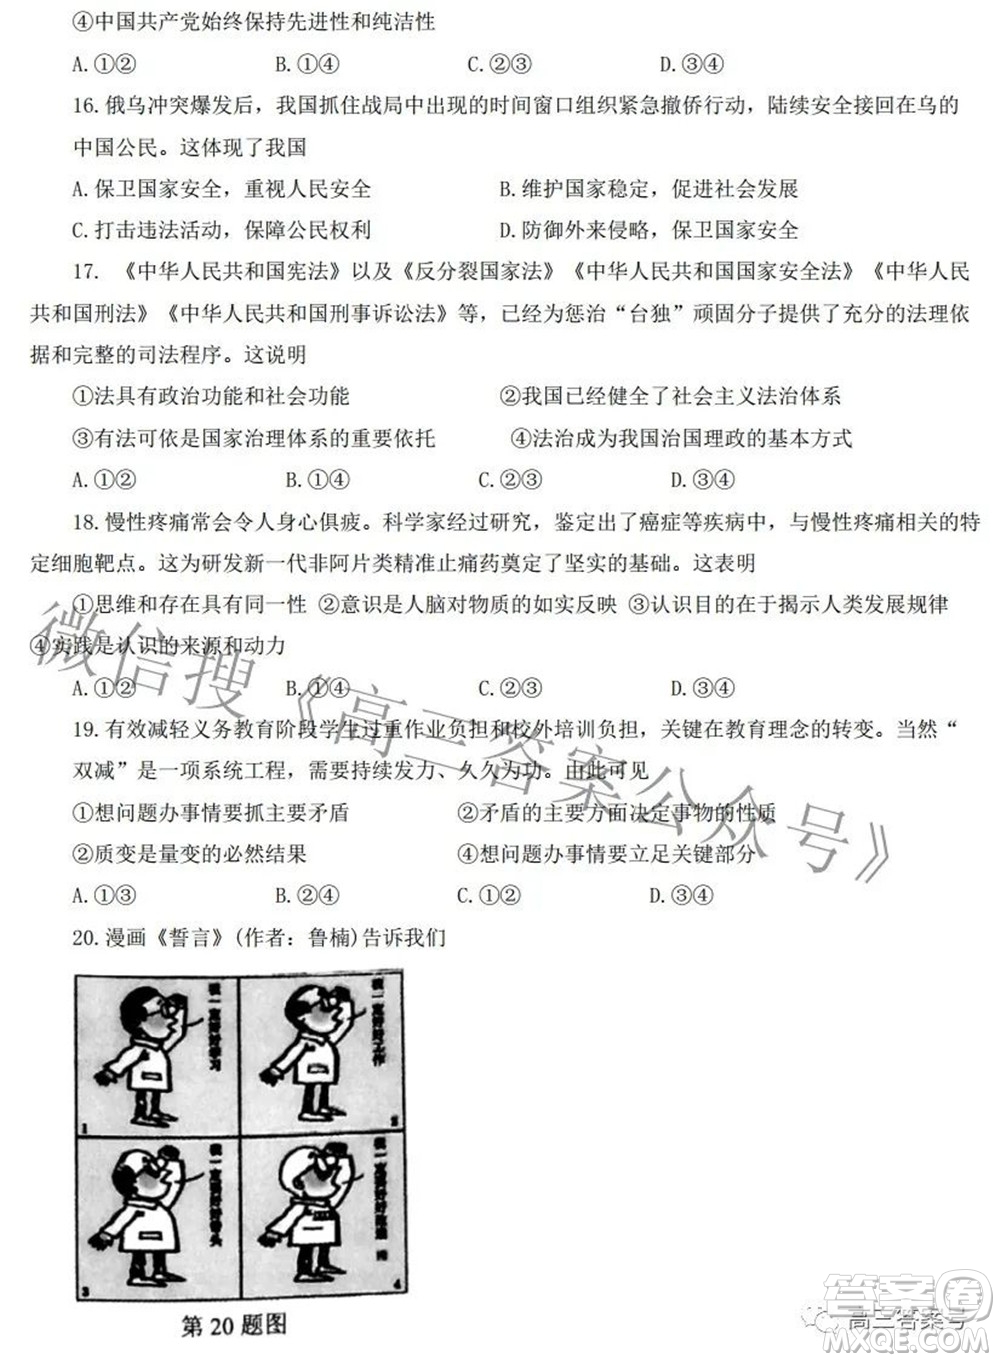 ④中国共产党始终保持先进性和纯洁性
A.①② B.①④ C.②③ D.③④
16.俄乌冲突爆发后，我国抓住战局中出现的时间窗口组织紧急撤侨行动，陆续安全接回在乌的
中国公民。这体现了我国
A.保卫国家安全，重视人民安全 B.维护国家稳定，促进社会发展
C.打击违法活动，保障公民权利 D.防御外来侵略，保卫国家安全
17. 《中华人民共和国宪法》以及《反分裂国家法》《中华人民共和国国家安全法》《中华人民
共和国刑法》《中华人民共和国刑事诉讼法》等，已经为惩治“台独”顽固分子提供了充分的法理依
据和完整的司法程序。这说明
①法具有政治功能和社会功能 ②我国已经健全了社会主义法治体系
③有法可依是国家治理体系的重要依托 ④法治成为我国治国理政的基本方式
A.①② B.①④ C.②③ D.③④
18.慢性疼痛常会令人身心俱疲。科学家经过研究，鉴定出了癌症等疾病中，与慢性疼痛相关的特
定细胞靶点。这为研发新一代非阿片类精准止痛药奠定了坚实的基础。这表明
①思维和存在具有同一性 ②意识是人脑对物质的如实反映 ③认识目的在于揭示人类发展规律
④实践是认识的来源和动力
A.①② B.①④ C.②③ D.③④
19.有效减轻义务教育阶段学生过重作业负担和校外培训负担，关键在教育理念的转变。当然“
双减”是一项系统工程，需要持续发力、久久为功。由此可见
①想问题办事情要抓主要矛盾 ②矛盾的主要方面决定事物的性质
②质变是量变的必然结果 ④想问题办事情要立足关键部分
A.①③ B.②④ C.①② D.③④
20.漫画《誓言》(作者：鲁楠)告诉我们
我一定好好学习
1
我一定好好工作
2
我一定好好带头
3
我一定好好
4
第20题图
微信搜《高三答案公众号》
答案圈
高三答案号
MXQE.COM